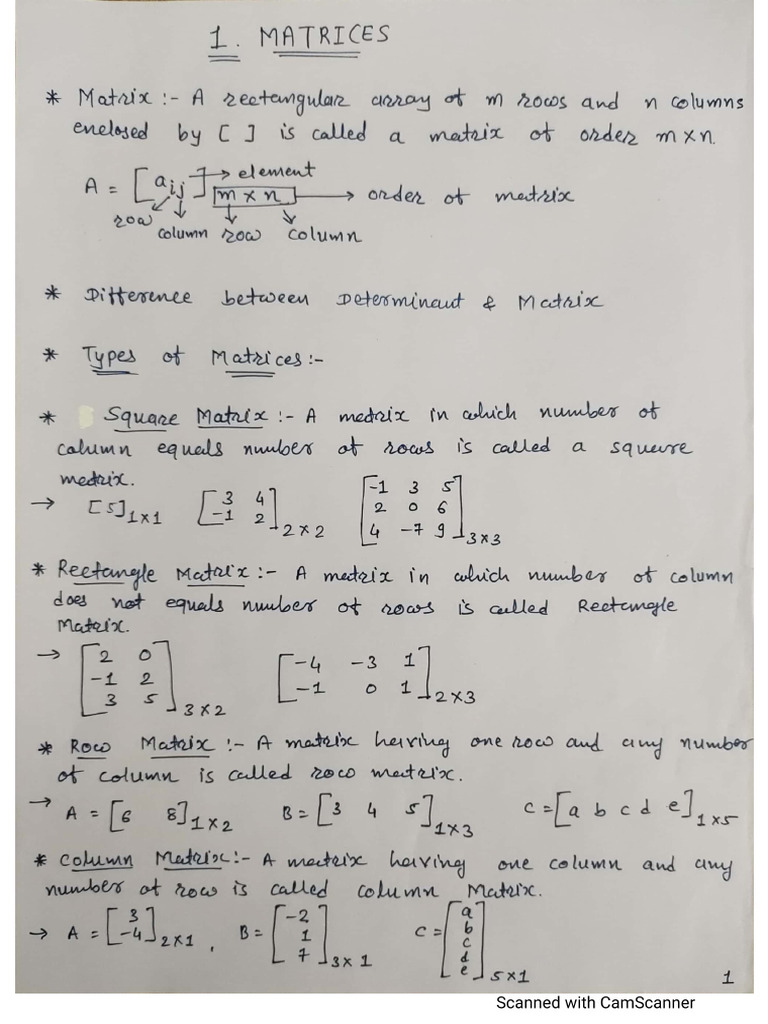 1. MATRICES
* Matrix :- A rectangular array of m rows and n columns
enclosed by [ ] is called a matrix of order m×n.
A = [aij] m × n → element → order of matrix
row column row column
* Difference between Determinant & Matrix
* Types of Matrices :-
* Square Matrix :- A matrix in which number of
column equals number of rows is called a square
matrix.
→ [5]1×1 [3 4 -1 2]2×2 [-1 3 5 2 0 6 4 -7 9]3×3
* Rectangle Matrix :- A matrix in which number of column
does not equals number of rows is called Rectangle
Matrix.
→ [2 0 -1 2 3 5]3×2 [-4 -3 1 -1 0 1]2×3
* Row Matrix :- A matrix having one row and any number
of column is called row matrix.
→ A = [6 8]1×2 B = [3 4 5]1×3 C = [a b c d e]1×5
* Column Matrix :- A matrix having one column and any
number of row is called column Matrix.
→ A = [3 -4]2×1 , B = [-2 1 7]3×1 C = [a b c d e]5×1
1
Scanned with CamScanner